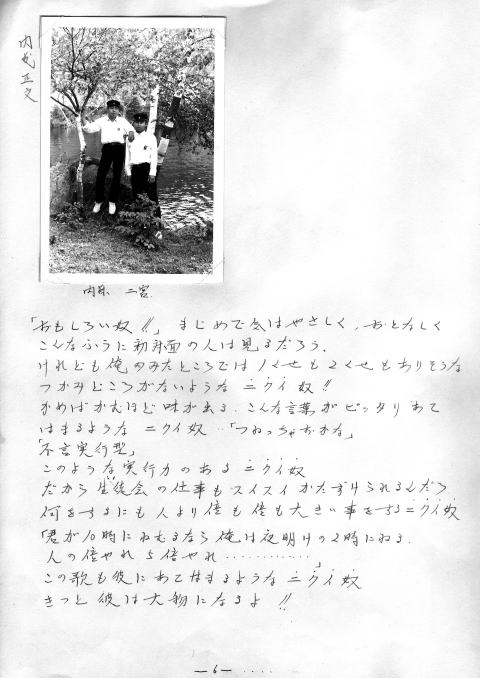 内 正文
内 二宮
「おもしろい奴!!」まじめで気はやさしく、おとなしく
こんなふうに初対面の人は見るだろう.
けれども俺のみたところでは1くせも2くせもありそうな
つかみどころがないような ニクイ奴!!
かめばかむほど味が出る. こんな言葉がピッタリあて
はまるような ニクイ奴‥「つねっちゃおかな」
「不言実行型」
このような実行力のある ニクイ奴
だから生徒会の仕事もスイスイかたずけられるんだろう
何をするにも人より倍も倍も大きい事をするニクイ奴
「君が10時にねむるなら俺は夜明けの2時にねる.
人の倍やれ 5倍やれ…………」
この歌も彼にあてはまるような ニクイ奴
きっと彼は大物になるよ!!
—6—